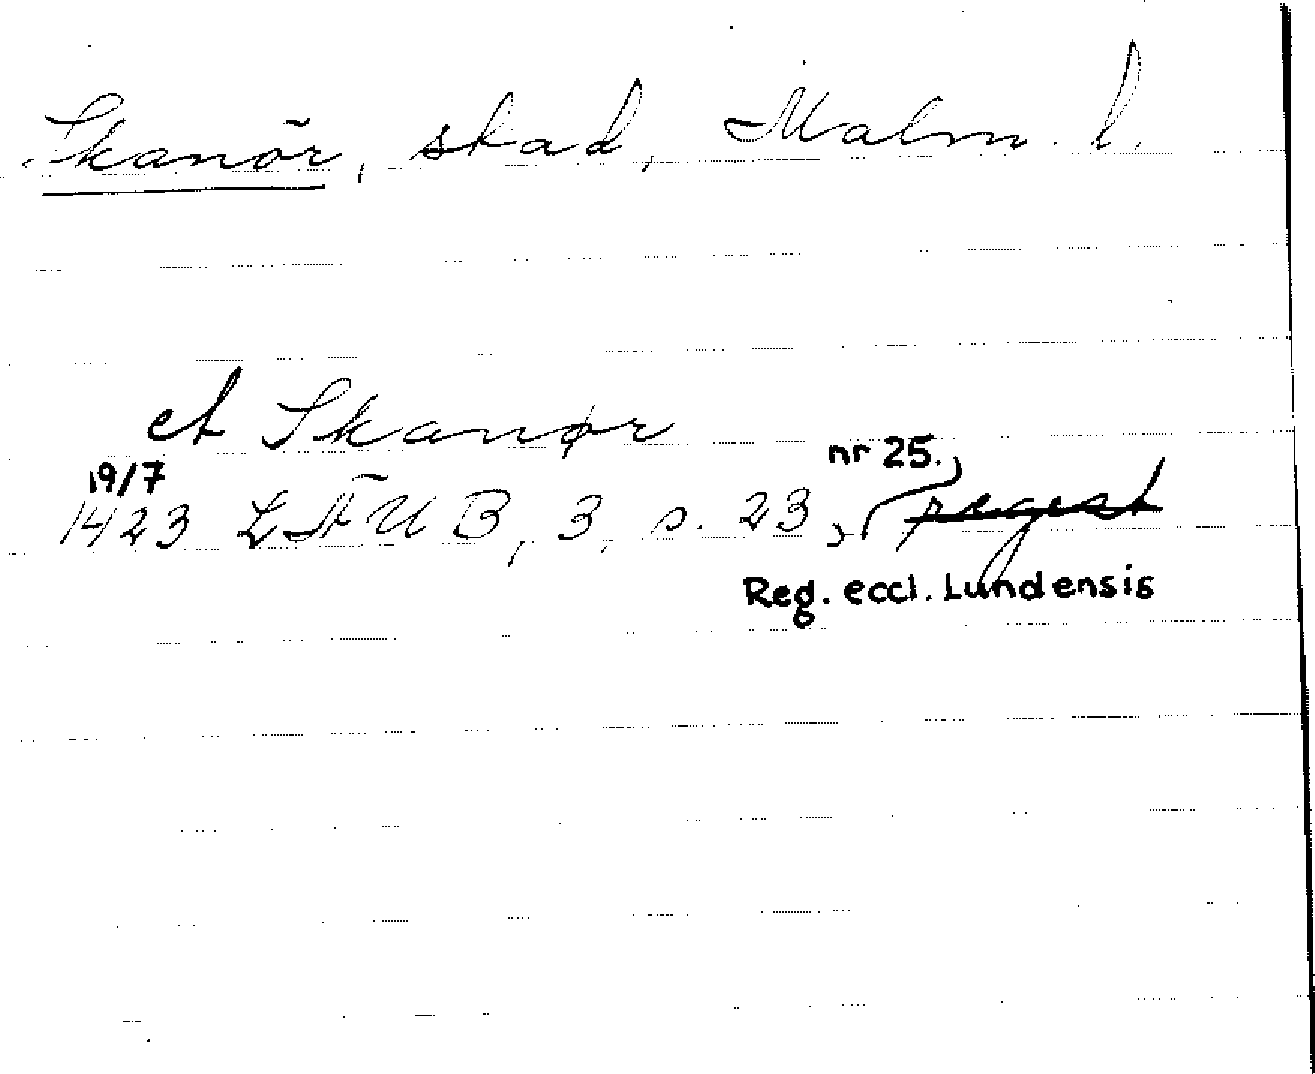 Skanör, stad, Malm. l.
et Skanør
19/7 nr 25.
1423 LÄUB, 3, s. 23, regest
Reg. eccl. Lundensis